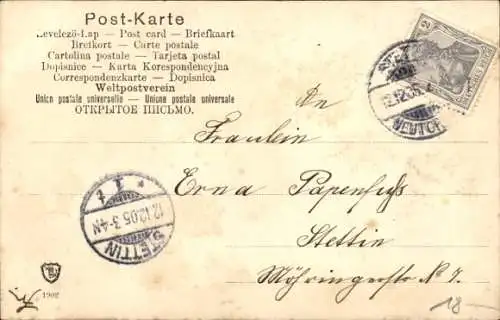 Post-Karte
Levelező-Lap — Post card — Briefkaart
Brefkort — Carte postale
Cartolina postale — Tarjeta postal
Dopisnice — Karta Korespondencyjna
Correspondenzkarte — Dopisnica
Weltpostverein
Union postale universelle — Unione postale universale
ОТКРЫТОЕ ПИСЬМО.
2
12.12.05
An
Fräulein
Erna Papenfuß
Stettin
Möhringerstr N 7.
12.12.05 3-4N
STETTIN
1902
18